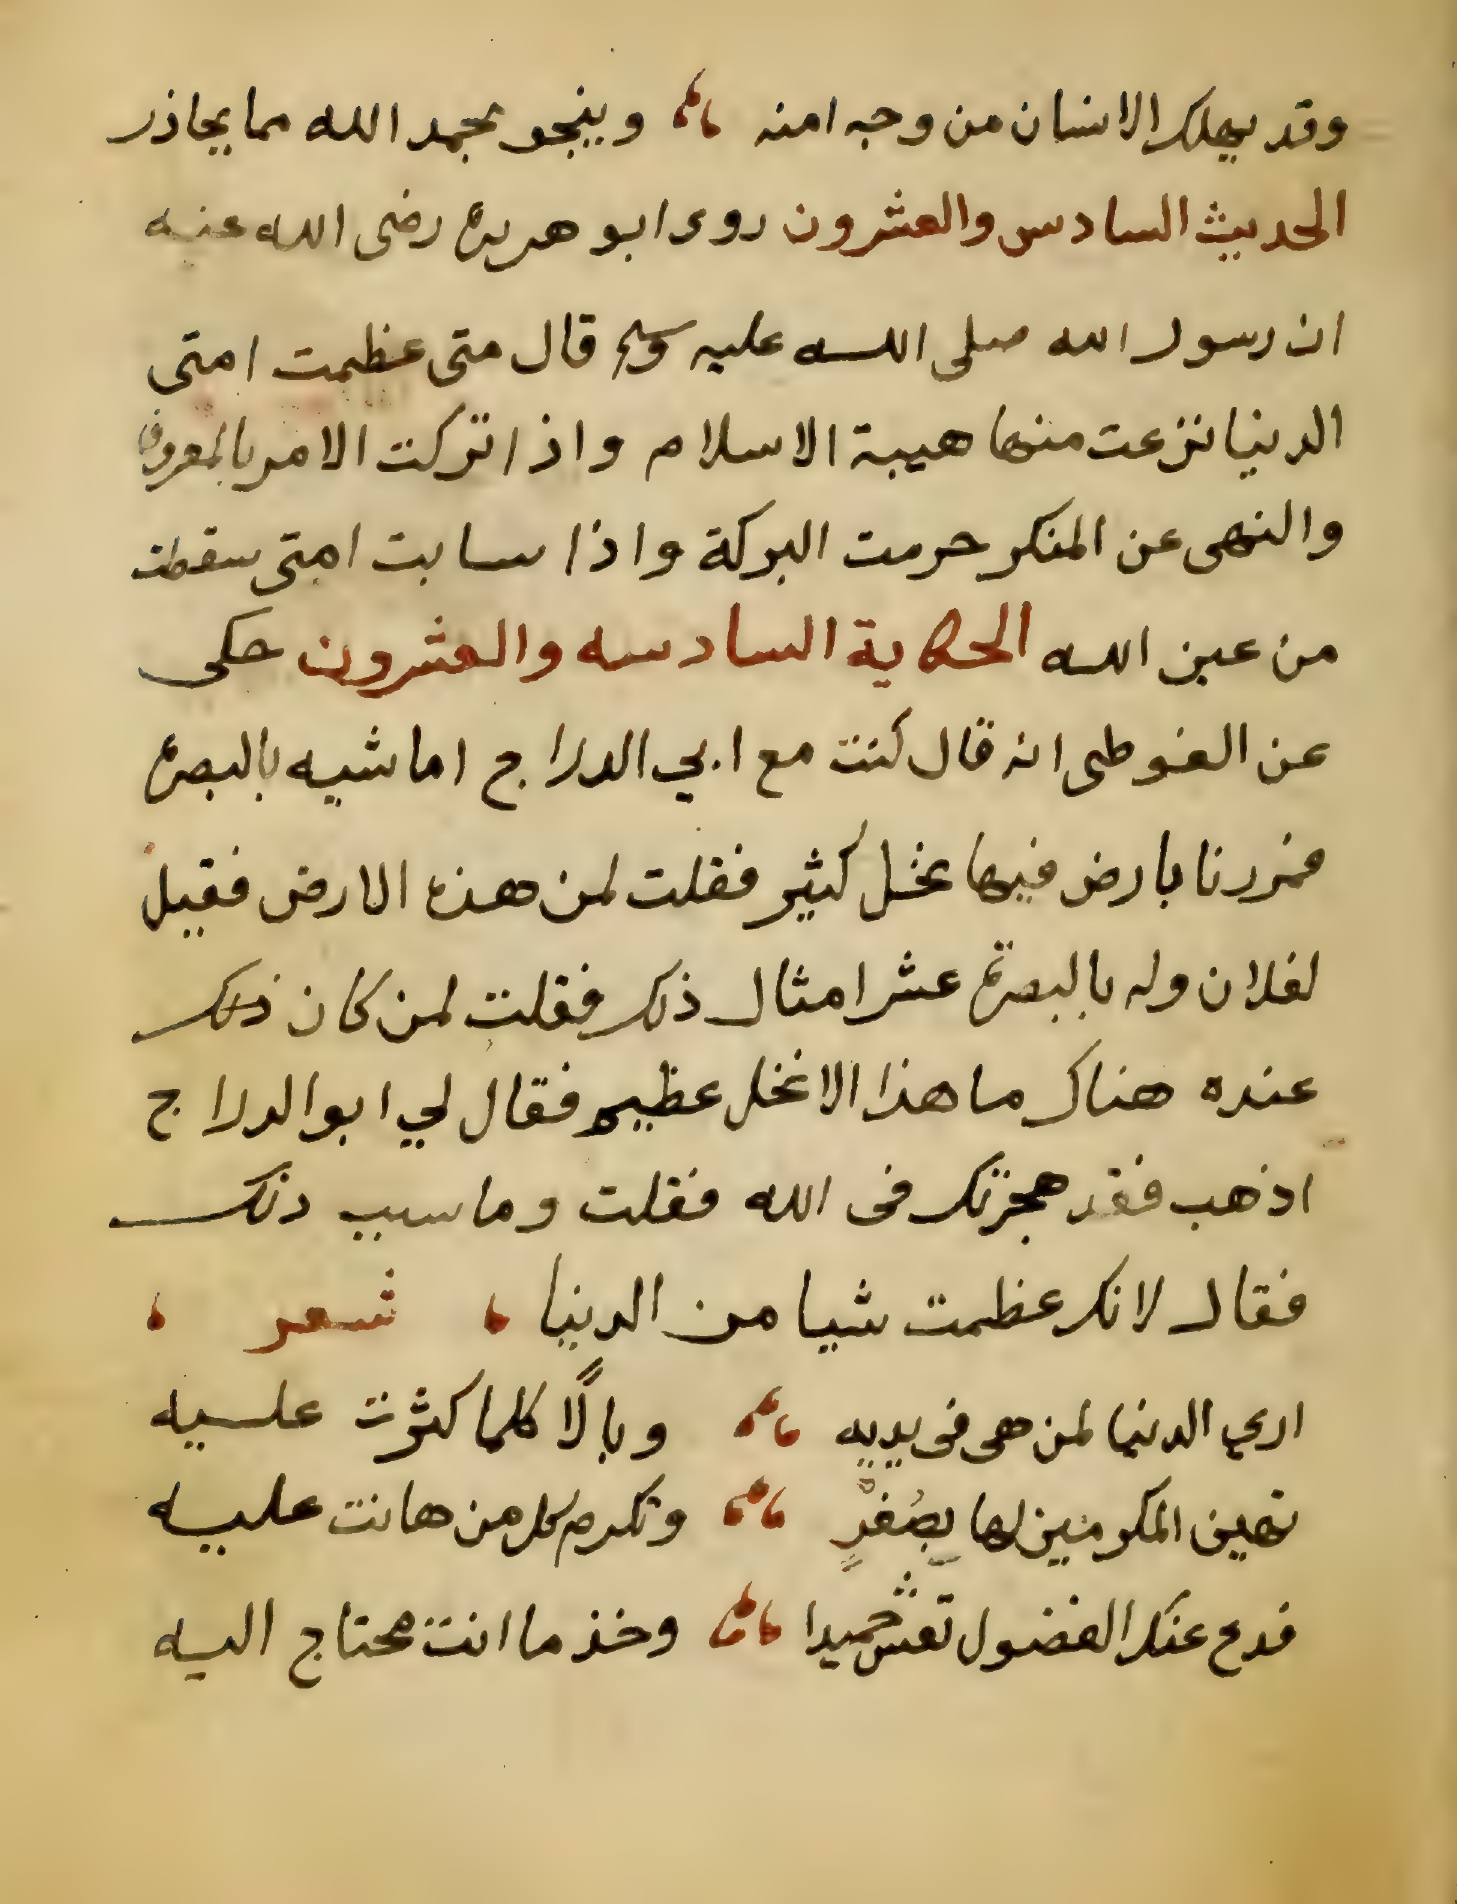 وقد يهلك الانسان من وجه امنه وينجو بحمد الله مما يحاذر
الحديث السادس والعشرون روى ابو هريرة رضى الله عنه
ان رسول الله صلى الله عليه وسلم قال متى عظمت امتى
الدنيا نزعت منها هيبة الاسلام واذا تركت الامر بالمعروف
والنهى عن المنكر حرمت البركة واذا سابت امتى سقطت
من عين الله الحكاية السادسه والعشرون حكى
عن الغوطى انه قال كنت مع ابي الدراج اماشيه بالبصرة
فمررنا بارض فيها نخل كثير فقلت لمن هذه الارض فقيل
لفلان وله بالبصرة عشر امثال ذلك فقلت لمن كان ذلك
عنده هناك ما هذا الا نخل عظيم فقال لي ابو الدراج
اذهب فقد هجرتك فى الله فقلت وما سبب ذلك
فقال لانك عظمت شيا من الدنيا شعر
اري الدنيا لمن هى فى يديه وبالًا كلما كثرت عليه
تهين المكرمين لها بصُغرٍ وتكرم كل من هانت عليه
فدع عنك الفضول تعش حميدا وخذ ما انت محتاج اليه